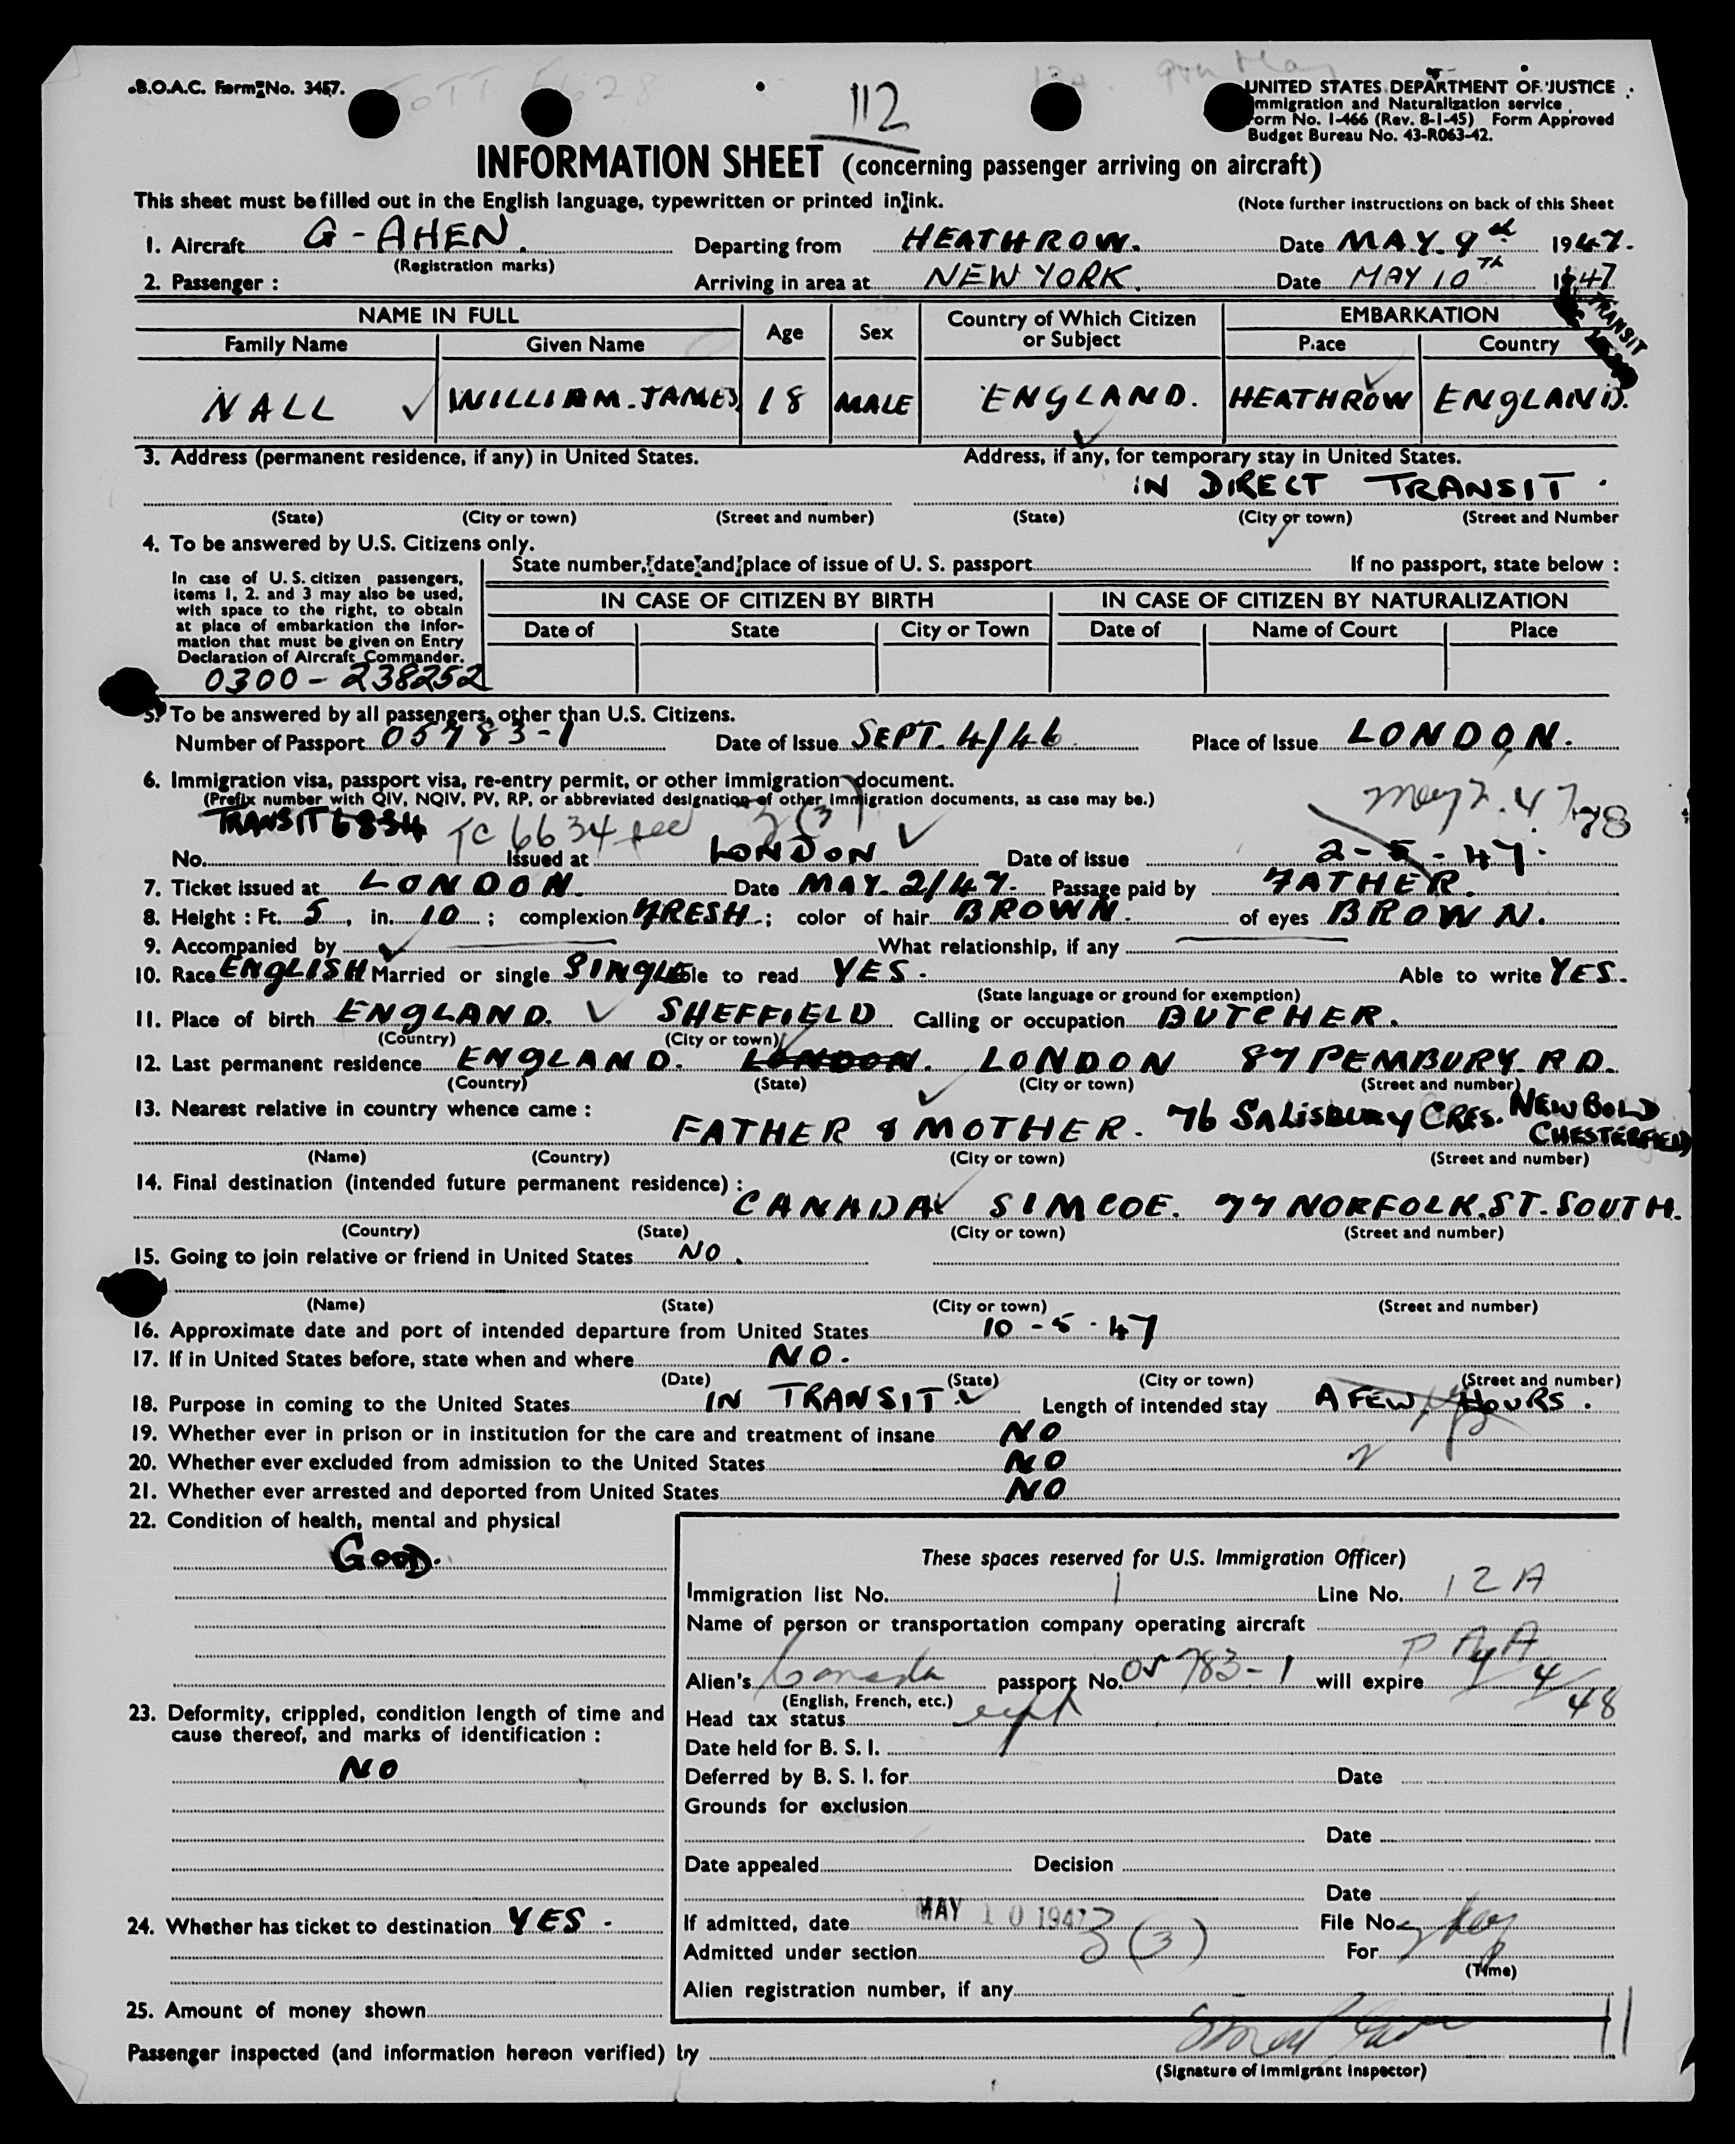 B.O.A.C. Form No. 3457.
112
UNITED STATES DEPARTMENT OF JUSTICE
Immigration and Naturalization service
Form No. I-466 (Rev. 8-1-45) Form Approved
Budget Bureau No. 43-R063-42.
INFORMATION SHEET (concerning passenger arriving on aircraft)
This sheet must be filled out in the English language, typewritten or printed in ink. (Note further instructions on back of this Sheet
1. Aircraft G-AHEN. Departing from HEATHROW. Date MAY. 9th 1947.
(Registration marks)
2. Passenger : Arriving in area at NEW YORK. Date MAY 10TH 1947
TRANSIT
NAME IN FULL Age Sex Country of Which Citizen or Subject EMBARKATION
Family Name Given Name Place Country
NALL WILLIAM-JAMES 18 MALE ENGLAND. HEATHROW ENGLAND.
3. Address (permanent residence, if any) in United States. Address, if any, for temporary stay in United States.
IN DIRECT TRANSIT.
(State) (City or town) (Street and number) (State) (City or town) (Street and Number
4. To be answered by U.S. Citizens only.
State number, date and place of issue of U. S. passport If no passport, state below :
In case of U. S. citizen passengers,
items 1, 2. and 3 may also be used,
with space to the right, to obtain
at place of embarkation the infor-
mation that must be given on Entry
Declaration of Aircraft Commander.
IN CASE OF CITIZEN BY BIRTH IN CASE OF CITIZEN BY NATURALIZATION
Date of State City or Town Date of Name of Court Place
0300-238252
5. To be answered by all passengers, other than U.S. Citizens.
Number of Passport 05783-1 Date of Issue SEPT. 4/46 Place of Issue LONDON.
6. Immigration visa, passport visa, re-entry permit, or other immigration document.
(Prefix number with QIV, NQIV, PV, RP, or abbreviated designation of other immigration documents, as case may be.)
TRANSIT TC 6634 3(3) May 2. 47 78
No. Issued at LONDON Date of issue 2-5-47.
7. Ticket issued at LONDON. Date MAY. 2/47. Passage paid by FATHER.
8. Height : Ft. 5, in. 10 ; complexion FRESH ; color of hair BROWN. of eyes BROWN.
9. Accompanied by What relationship, if any
10. Race ENGLISH Married or single SINGLE Able to read YES. Able to write YES.
(State language or ground for exemption)
11. Place of birth ENGLAND. SHEFFIELD Calling or occupation BUTCHER.
(Country) (City or town)
12. Last permanent residence ENGLAND. LONDON. LONDON 87 PEMBURY. RD.
(Country) (State) (City or town) (Street and number)
13. Nearest relative in country whence came :
FATHER & MOTHER. 76 SALISBURY CRES. NEWBOLD CHESTERFIELD
(Name) (Country) (City or town) (Street and number)
14. Final destination (intended future permanent residence) :
CANADA SIMCOE. 77 NORFOLK. ST. SOUTH.
(Country) (State) (City or town) (Street and number)
15. Going to join relative or friend in United States NO.
(Name) (State) (City or town) (Street and number)
16. Approximate date and port of intended departure from United States 10-5-47
17. If in United States before, state when and where NO.
(Date) (State) (City or town) (Street and number)
18. Purpose in coming to the United States IN TRANSIT. Length of intended stay A FEW HOURS.
19. Whether ever in prison or in institution for the care and treatment of insane NO
20. Whether ever excluded from admission to the United States NO
21. Whether ever arrested and deported from United States NO
22. Condition of health, mental and physical
GOOD.
These spaces reserved for U.S. Immigration Officer)
Immigration list No. 1 Line No. 12A
Name of person or transportation company operating aircraft
P A A
Alien's Canada passport No. 05783-1 will expire 9/4/48
(English, French, etc.)
23. Deformity, crippled, condition length of time and
cause thereof, and marks of identification :
NO
Head tax status
Date held for B. S. I.
Deferred by B. S. I. for Date
Grounds for exclusion
Date
Date appealed Decision
Date
24. Whether has ticket to destination YES.
If admitted, date MAY 10 1947 File No.
Admitted under section 3(3) For
(Time)
Alien registration number, if any
25. Amount of money shown
11
Passenger inspected (and information hereon verified) by
(Signature of Immigrant Inspector)